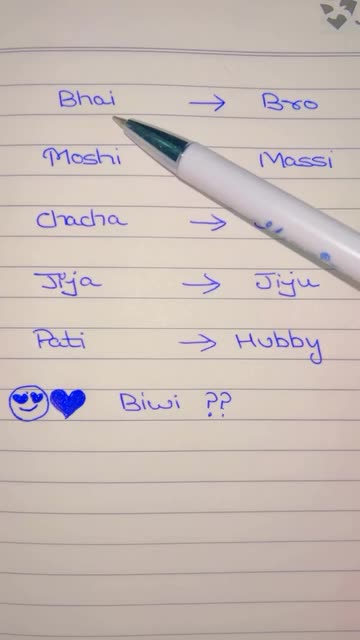 Bhai → Bro
Moshi Massi
Chacha →
Jija → Jiju
Pati → Hubby
Biwi ??